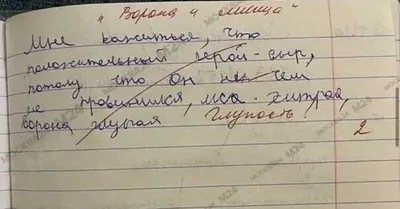 "Ворона и лисица"
Мне кажиться, что
положительный герой-сыр,
потому что он не чем
не провинился, лиса-хитрая,
ворона глупая Глупость
2
МОСКВА М24